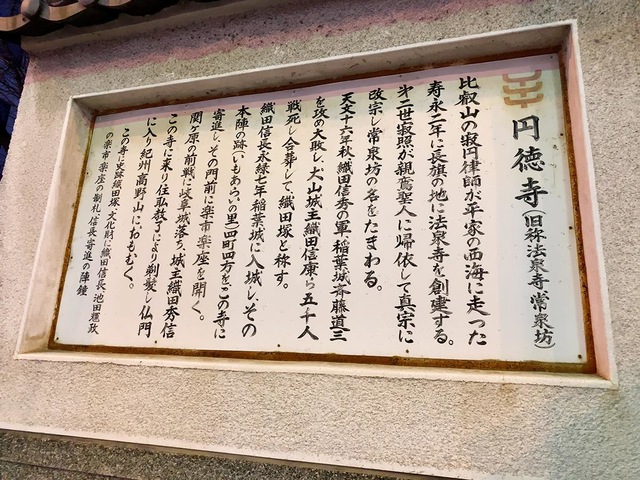 円徳寺(旧称法泉寺常泉坊)
比叡山の寂円律師が平家の西海に走った
寿永二年に長旗の地に法泉寺を創建する。
第二世寂照が親鸞聖人に帰依して真宗に
改宗し常泉坊の名をたまわる。
天文十六年秋織田信秀の軍、稲葉城斎藤道三
を攻め大敗し、犬山城主織田信康ら五千人
戦死し合葬して、織田塚と称す。
織田信長永禄七年稲葉城に入城し、その
本陣の跡(いもあらいの里)四町四方をこの寺に
寄進し、その門前に楽市楽座を開く。
関ヶ原の前戦に岐阜城落ち、城主織田秀信
この寺に来り住弘教了により剃髪し仏門
に入り紀州高野山におもむく。
この寺に史跡織田塚、文化財に織田信長、池田輝政
の楽市楽座の制札、信長寄進の陣鐘